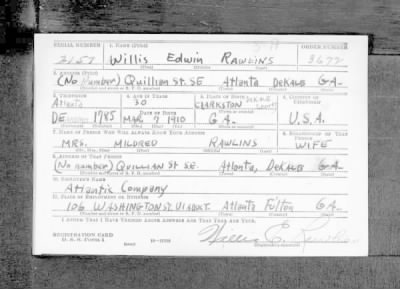 SERIAL NUMBER 1. NAME (Print) ORDER NUMBER
2157 Willis Edwin Rawlins 3677
2. ADDRESS (Print)
(No number) Quillian St. SE Atlanta DeKalb GA.
3. TELEPHONE 4. AGE IN YEARS 5. PLACE OF BIRTH 6. COUNTRY OF CITIZENSHIP
Atlanta 30 CLARKSTON DEKALB COUNTY
DE 1785 DATE OF BIRTH MAR. 7 1910 GA. U.S.A.
7. NAME OF PERSON WHO WILL ALWAYS KNOW YOUR ADDRESS 8. RELATIONSHIP OF THAT PERSON
MRS. MILDRED RAWLINS WIFE
9. ADDRESS OF THAT PERSON
(No number) QUILLIAN St SE. Atlanta, DeKalb GA.
10. EMPLOYER'S NAME
Atlantic Company
11. PLACE OF EMPLOYMENT OR BUSINESS
106 WASHINGTON St. VIADUCT. Atlanta Fulton GA.
I AFFIRM THAT I HAVE VERIFIED ABOVE ANSWERS AND THAT THEY ARE TRUE.
REGISTRATION CARD
D. S. S. FORM 1
Willis E. Rawlins